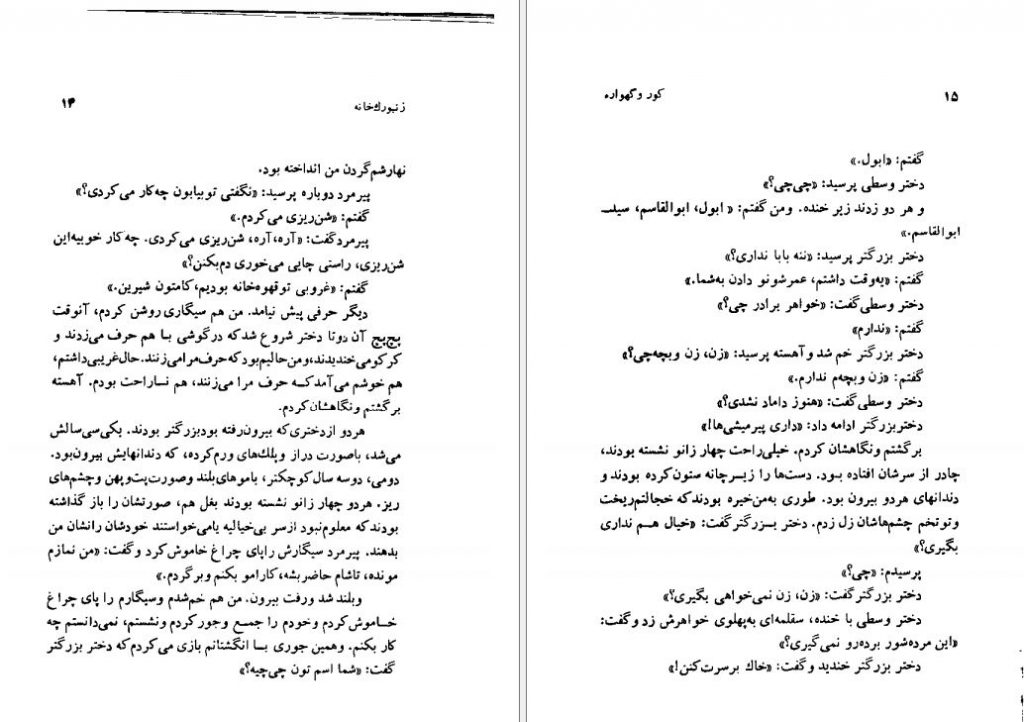 ۱۴
زنبورك‌خانه
نهارشم‌گردن من انداخته بود.
پیرمرد دوباره پرسید: «نگفتی توبیابون چه‌کار می‌کردی؟»
گفتم: «شن‌ریزی می‌کردم.»
پیرمردگفت: «آره،آره، شن‌ریزی می‌کردی. چه‌کار خوبیه‌این
شن‌ریزی، راستی چایی می‌خوری دم‌بکنن؟»
گفتم: «غروبی توقهوه‌خانه بودیم،کامتون شیرین.»
دیگر حرفی پیش نیامد. من هم سیگاری روشن کردم، آنوقت
پچ‌پچ آن دوتا دختر شروع شدکه درگوشی بـا هم حرف می‌زدند و
کرکرمی‌خندیدند،ومن‌حالیم‌بودکه‌حرف‌مرامی‌زنند.حال‌غریبی‌داشتم،
هم خوشم می‌آمدکـه حرف مرا می‌زنند، هم نـاراحت بودم. آهسته
برگشتم ونگاهشان‌کردم.
هردو ازدختری‌که بیرون‌رفته بودبزرگتر بودند. یکی‌سی‌سالش
می‌شد، باصورت دراز وپلك‌های ورم‌کرده، که دندانهایش بیرون‌بود.
دومی، دوسه سال‌کوچکتر، باموهای‌بلند وصورت‌پت‌وپهن وچشم‌های
ریز. هردو چهار زانو نشسته بودند بغل هم، صورتشان را باز گذاشته
بودندکه معلوم‌نبود ازسر بی‌خیالیه یامی‌خواستند خودشان رانشان من
بدهند. پیرمرد سیگارش راپای چراغ خاموش‌کرد وگفت: «من نمازم
مونده، تاشام حاضربشه،کارامو بکنم وبرگردم.»
وبلند شد ورفت بیرون. من هم خم‌شدم وسیگارم را پای چراغ
خـاموش‌کردم وخودم را جمـع وجورکردم ونشستم، نمی‌دانستم چه
کار بکنم. وهمین جوری بـا انگشتانم بازی می‌کردم‌که دختر بزرگتر
گفت: «شما اسم تون چی‌چیه؟»
کور وگهواره
۱۵
گفتم: «ابول.»
دختر وسطی پرسید: «چی‌چی؟»
و هر دو زدند زیر خنده. ومن گفتم: « ابول، ابوالقاسم، سیدـ
ابوالقاسم.»
دختر بزرگتر پرسید: «ننه بابا نداری؟»
گفتم: «یه‌وقت داشتم، عمرشونو دادن به‌شما.»
دختر وسطی‌گفت: «خواهر برادر چی؟»
گفتم: «ندارم»
دختر بزرگتر خم شد وآهسته پرسید: «زن، زن وبچه‌چی؟»
گفتم: «زن وبچه‌م ندارم.»
دختر وسطی‌گفت: «هنوز داماد نشدی؟»
دختربزرگتر ادامه داد: «داری پیرمیشی‌ها!»
برگشتم ونگاهشان کردم. خیلی‌راحت چهار زانو نشسته بودند،
چادر از سرشان افتاده بـود. دست‌ها را زیـرچانه ستون‌کرده بودند و
دندانهای هردو بیرون بود. طوری به‌من‌خیره بودندکه خجالتم‌ریخت
وتوتخم چشم‌هاشان زل زدم. دختر بـزرگترگفت: «خیال هـم نداری
بگیری؟»
پرسیدم: «چی؟»
دختر بزرگترگفت: «زن، زن نمی‌خواهی بگیری؟»
دختر وسطی با خنده، سقلمه‌ای به‌پهلوی خواهرش زد وگفت:
«این مرده‌شور برده‌رو نمی‌گیری؟»
دختر بزرگتر خندید وگفت: «خاك برسرت‌کنن!»